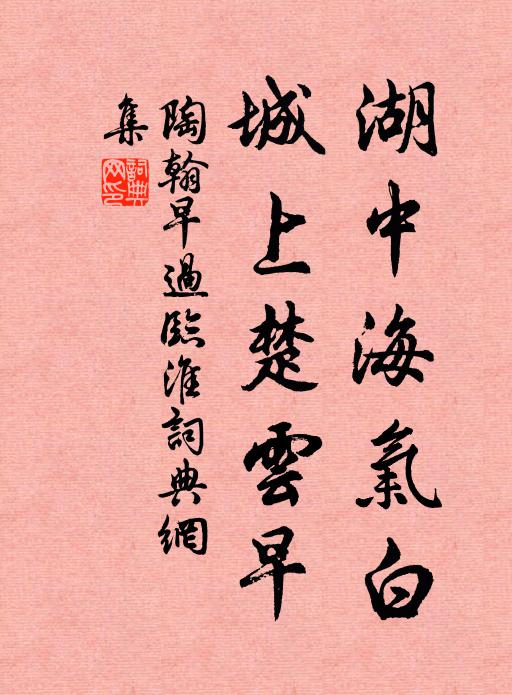 湖中海氣白
城上楚雲早
陶翰早過臨淮詞典網
集
詞典網印